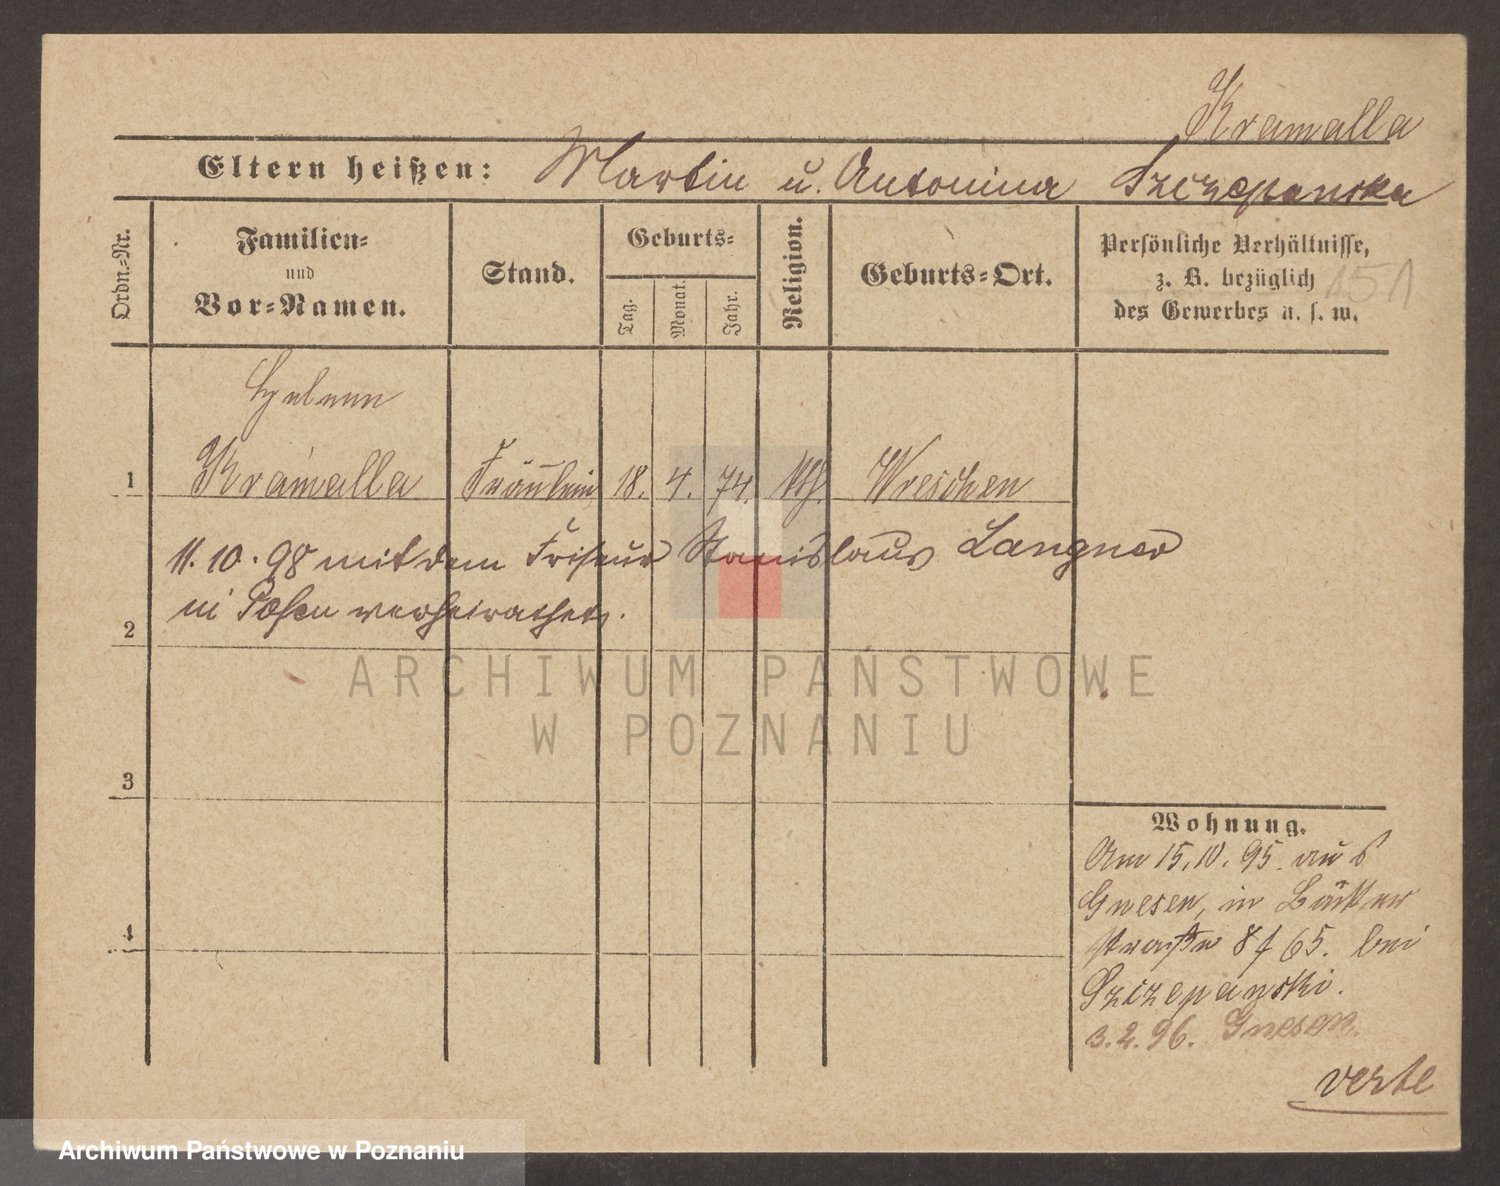 Kramalla
Eltern heißen: Martin u. Antonina Szczepanska
Ordn.-Nr.
Familien-
und
Vor-Namen.
Stand.
Geburts-
Tag.
Monat.
Jahr.
Religion.
Geburts-Ort.
Persönliche Verhältnisse,
z. B. bezüglich
des Gewerbes u. s. w.
151
Helene
1 Kramalla Fräulein 18. 4. 74. kth. Wreschen
11. 10. 98 mit dem Friseur Stanislaus Langner
2 in Posen verheirathet.
ARCHIWUM PAŃSTWOWE
W POZNANIU
3
4
Wohnung.
Am 15.10.95. aus
Gnesen, in Bäcker
straße 8 f 65. bei
Szczepanski.
3.2.96. Gnesen.
verte
Archiwum Państwowe w Poznaniu